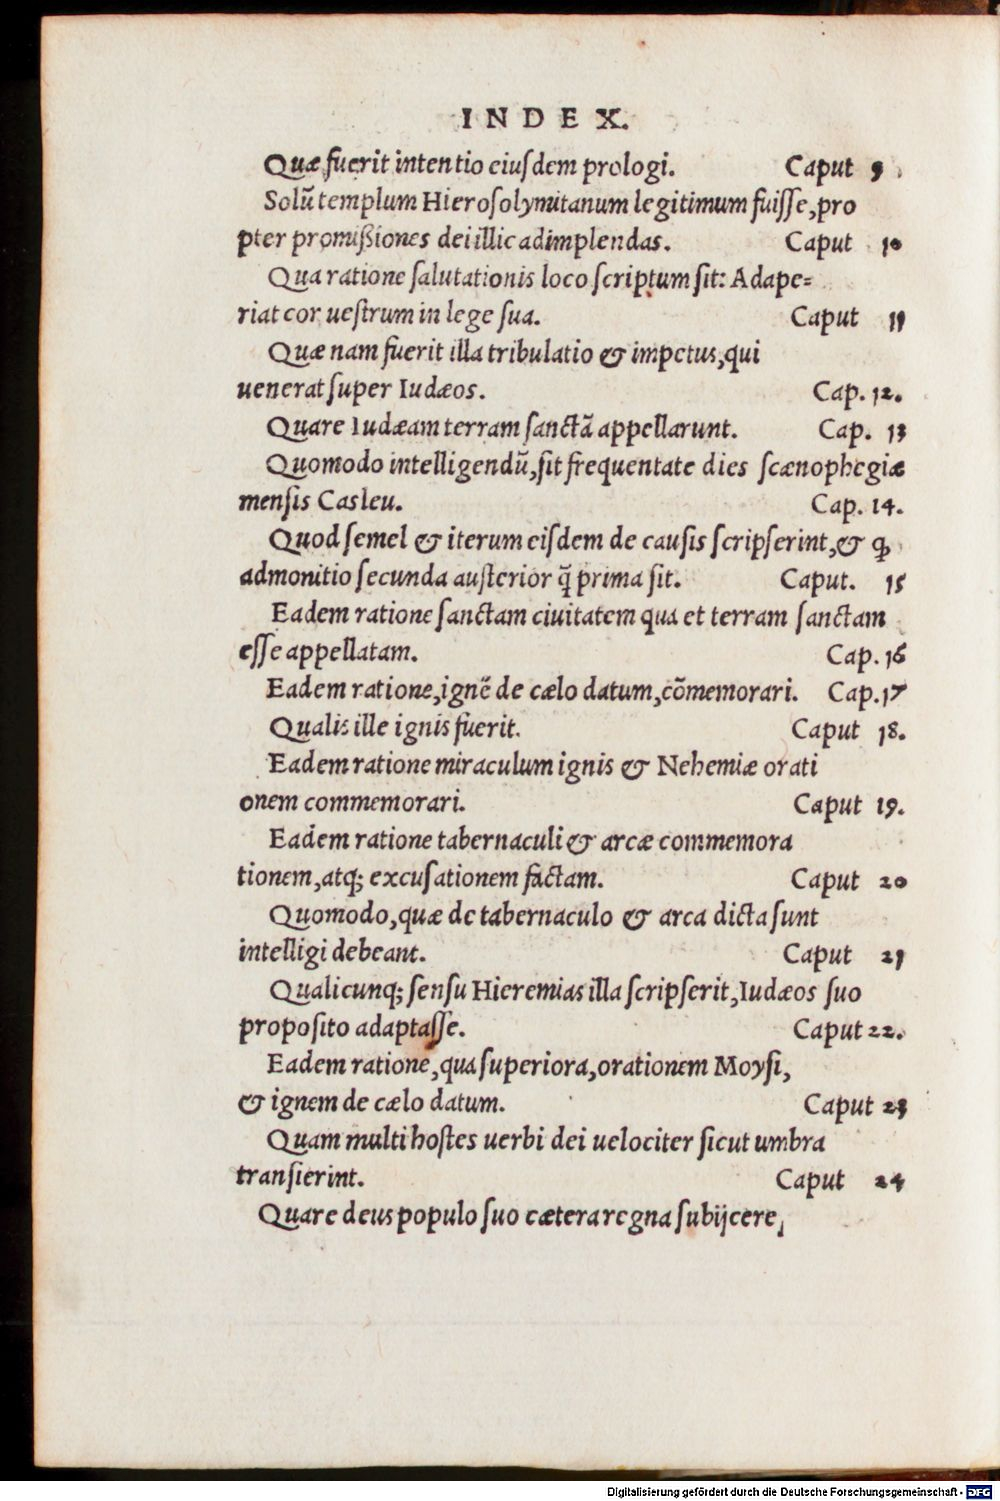 INDEX.
Quæ fuerit intentio eiuſdem prologi. Caput 9
Solũ templum Hieroſolymitanum legitimum fuiſſe, pro
pter promißiones dei illic adimplendas. Caput 10
Qua ratione ſalutationis loco ſcriptum ſit: Adape=
riat cor ueſtrum in lege ſua. Caput 11
Quæ nam fuerit illa tribulatio & impetus, qui
uenerat ſuper Iudæos. Cap. 12.
Quare Iudæam terram ſanctã appellarunt. Cap. 13
Quomodo intelligendũ, ſit frequentate dies ſcænophegiæ
menſis Casleu. Cap. 14.
Quod ſemel & iterum eiſdem de cauſis ſcripſerint, & ꝙ
admonitio ſecunda auſterior q̃ prima ſit. Caput. 15
Eadem ratione ſanctam ciuitatem qua et terram ſanctam
eſſe appellatam. Cap. 16
Eadem ratione, ignẽ de cælo datum, cõmemorari. Cap. 17
Qualis ille ignis fuerit. Caput 18.
Eadem ratione miraculum ignis & Nehemiæ orati
onem commemorari. Caput 19.
Eadem ratione tabernaculi & arcæ commemora
tionem, atq; excuſationem factam. Caput 20
Quomodo, quæ de tabernaculo & arca dicta ſunt
intelligi debeant. Caput 21
Qualicunq; ſenſu Hieremias illa ſcripſerit, Iudæos ſuo
propoſito adaptaſſe. Caput 22.
Eadem ratione, qua ſuperiora, orationem Moyſi,
& ignem de cælo datum. Caput 23
Quam multi hoſtes uerbi dei uelociter ſicut umbra
tranſierint. Caput 24
Quare deus populo ſuo cætera regna ſubijcere,
Digitalisierung gefördert durch die Deutsche Forschungsgemeinschaft - DFG